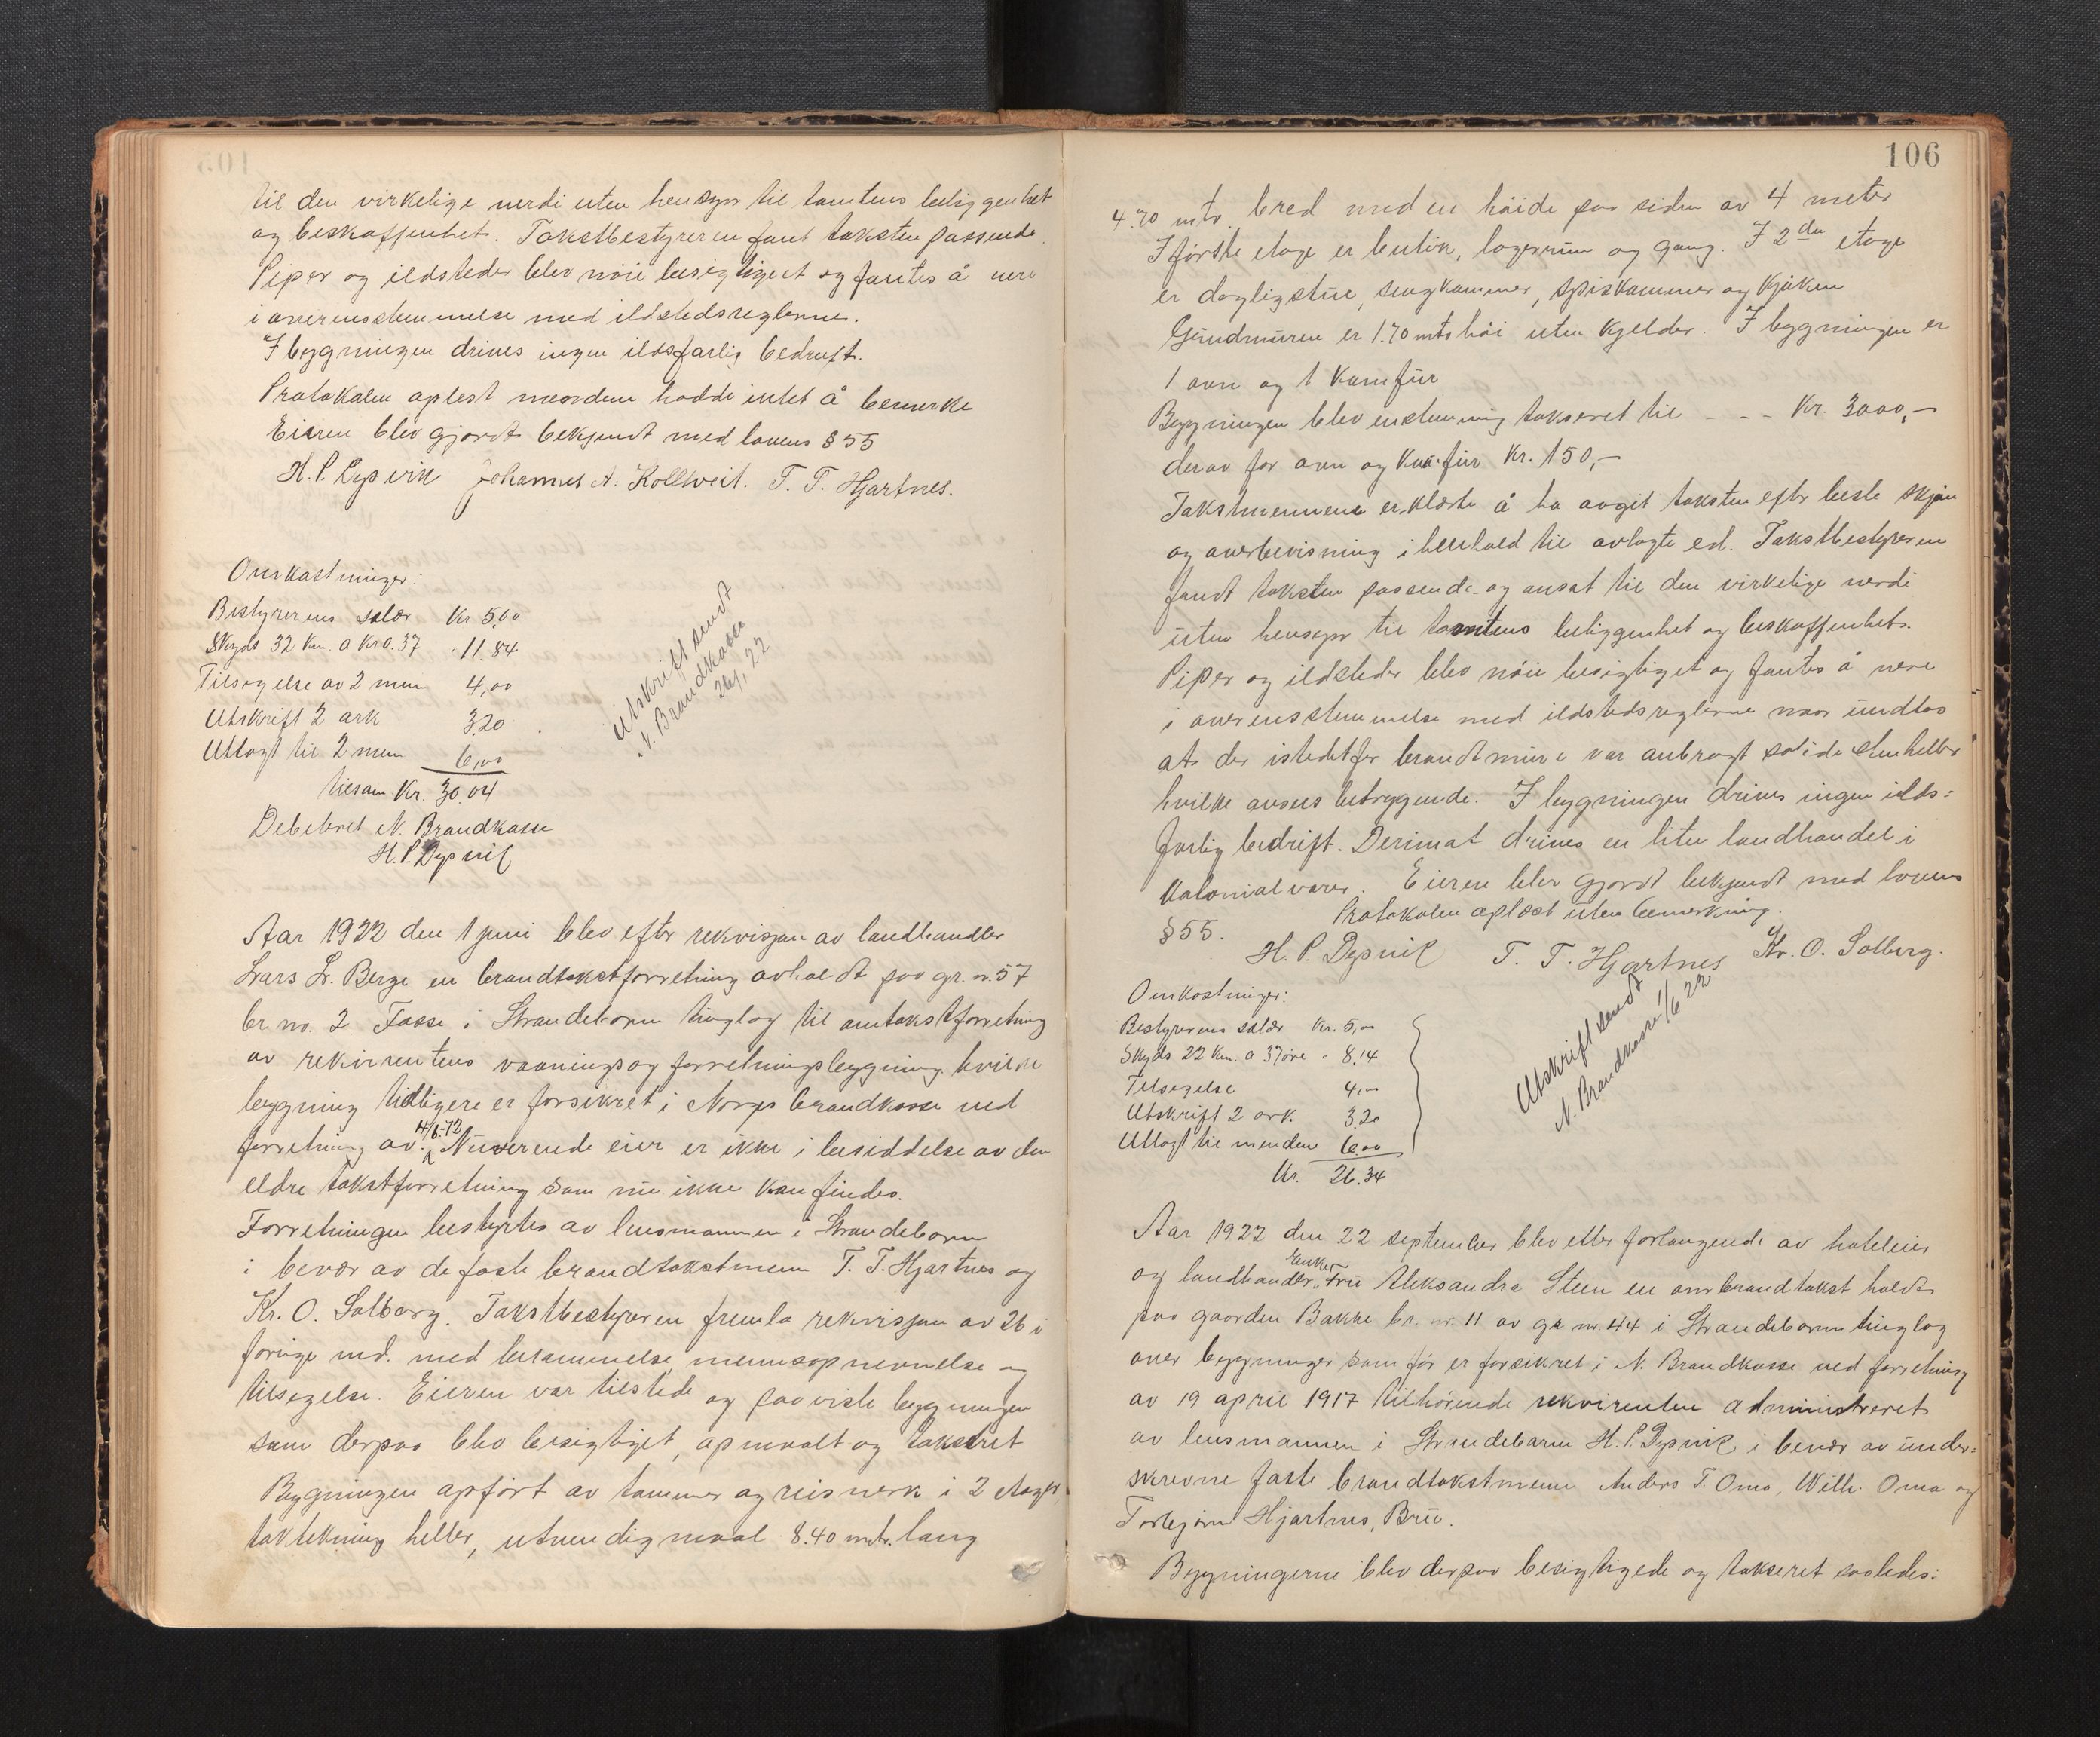 til den virkelige verdi uten hensyn til tomtens beliggenhet
og beskaffenhet. Takstbestyreren fant taksten passende.
Piper og ildsteder blev nöie besigtiget og fantes å vere
i overensstemmelse med ildstedsreglerne.
I bygningen drives ingen ildsfarlig bedrift.
Protokolen oplest mendene hadde intet å bemerke
Eieren blev gjordt bekjendt med lovens § 55
H. P. Dysvik Johannes A. Kolltveit. T. T. Hjartnes.
Omkostninger:
Bestyrerens salær Kr 5,00
Skyds 32 Km. a Kr 0.37 " 11.84
Tilsigelse av 2 menn 4,00
Utskrift 2 ark 3.20
Utlagt til 2 menn 6,00
tilsam Kr. 30.04
Debiteret N. Brandkasse
H. P. Dysvik
Utskrift sendt
N. Brandkasse
26/1 22
Aar 1922 den 1 juni blev efter rekvisjon av landhandler
Lars L. Berge en brandtakstforretning avholdt paa gr. nr. 57
br no. 2 Fosse i Strandebarm tinglag til omtakstforretning
av rekvirentens vaanings og forretningsbygning hvilke
bygning tidligere er forsikret i Norges brandkasse ved
forretning av 4/6-12 Nuverende eier er ikke i besiddelse av den
eldre takstforretning som nu ikke kan findes.
Forretningen bestyrtes av lensmannen i Strandebarm
i bevær av de faste brandtakstmenn T. T. Hjartnes og
Kr. O. Solberg. Takstbestyreren fremla rekvisjon av 26 i
forige md. med berammelse, mennsopnevnelse og
tilsigelse. Eieren var tilstede og paaviste bygningen
som derpaa blev besigtiget, opmaalt og taksert
Bygningen opfört av tømmer og reisverk i 2 etager,
taktekning heller, utvendig maal 8.40 mtr. lang
106
4.70 mtr. bred med en höide paa siden av 4 meter
I förste etage er butik, lagerrum og gang. I 2den etage
er dagligstue, sengkammer, spiskammer og kjøken
Grundmuren er 1.70 mtr höi uten kjelder. I bygningen er
1 ovn og 1 komfür
Bygningen blev enstemmig takseret til - - - Kr. 3000,-
derav for ovn og komfür Kr. 150,-
Takstmennene erklærte å ha avgit taksten efter beste skjøn
og overbevisning i henhold til avlagte ed. Takstbestyreren
fandt taksten passende og ansat til den virkelige verdi
uten hensyn til tomtens beliggenhet og beskaffenhet.
Piper og ildsteder blev nöie besigtiget og fantes å vere
i overensstemmelse med ildstedsreglerne naar undtas
at der istedetfor brandmure var anbragt solide stenheller
hvilke ansees betryggende. I bygningen drives ingen ilds-
farlig bedrift. Derimot drives en liten landhandel i
kolonialvarer. Eieren blev gjordt bekjendt med lovens
§ 55. Protokolen oplæst uten bemerkning.
H. P. Dysvik T. T. Hjartnes Kr. O. Solberg.
Omkostninger:
Bestyrerens salær Kr. 5,00
Skyds 22 Km. a 37 øre " 8.14
Tilsigelse 4,00
Utskrift 2 ark. 3.20
Utlagt til mendene 6.00
Kr. 26.34
Utskrift sendt
N. Brandkasse 1/6 22
Aar 1922 den 22 september blev etter forlangende av hoteleier
og landhandler Enke Fru Aleksandra Steen en ombrandtakst holdt
paa gaarden Bakke br. nr. 11 av gr nr. 44 i Strandebarm tinglag
over bygninger som før er forsikret i N. Brandkasse ved forretning
av 19 april 1917 tilhörende rekvirenten administreret
av lensmannen i Strandebarm H. P. Dysvik i bevær av under-
skrevne faste brandtakstmenn Anders T. Oma, Will. Oma og
Torbjørn Hjartnes, Bru.
Bygningerne blev derpaa besigtigede og takseret saaledes: